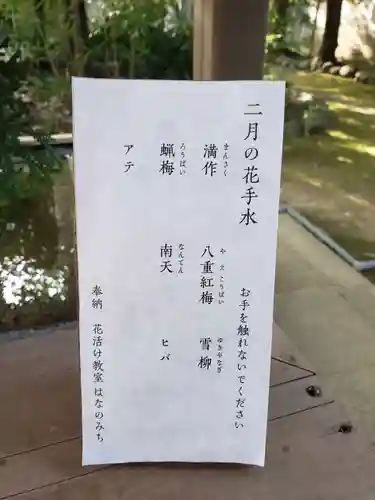 二月の花手水
お手を触れないでください
満作 八重紅梅 雪柳
まんさく やえこうばい ゆきやなぎ
蝋梅 南天 ヒバ
ろうばい なんてん
アテ
奉納 花活け教室はなのみち